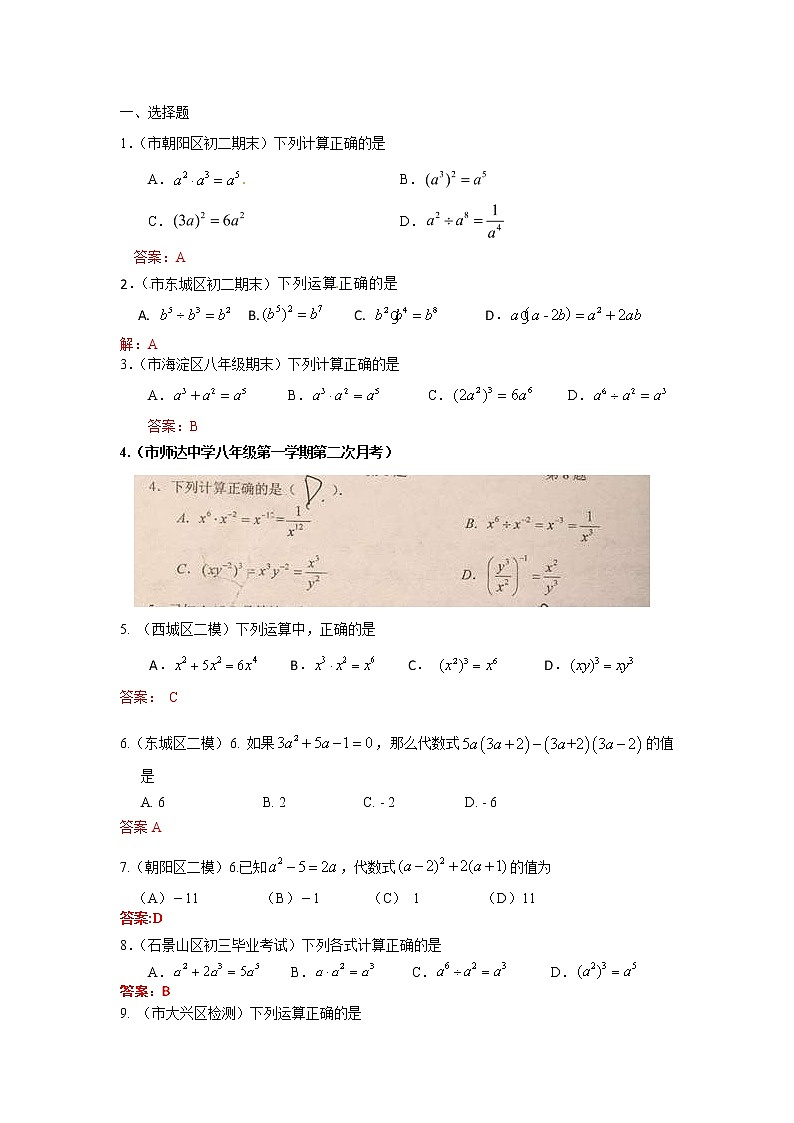 一、选择题
1.（市朝阳区初二期末）下列计算正确的是
A. a² · a³ = a⁵. B. (a³)² = a⁵
C. (3a)² = 6a² D. a² ÷ a⁸ = 1/a⁴
答案：A
2.（市东城区初二期末）下列运算正确的是
A. b⁵ ÷ b³ = b² B. (b⁵)² = b⁷ C. b²gb⁴ = b⁸ D. ag(a - 2b) = a² + 2ab
解：A
3.（市海淀区八年级期末）下列计算正确的是
A. a³ + a² = a⁵ B. a³ · a² = a⁵ C. (2a²)³ = 6a⁶ D. a⁶ ÷ a² = a³
答案：B
4.（市师达中学八年级第一学期第二次月考）
第 8 题
4. 下列计算正确的是（ D ）.
A. x⁶ · x⁻² = x⁻¹² = 1/x¹² B. x⁶ ÷ x⁻² = x⁻³ = 1/x³
C. (xy⁻²)³ = x³y⁻² = x³/y² D. (y³/x²)⁻¹ = x²/y³
5. （西城区二模）下列运算中，正确的是
A. x² + 5x² = 6x⁴ B. x³ · x² = x⁶ C. (x²)³ = x⁶ D. (xy)³ = xy³
答案： C
6.（东城区二模）6. 如果 3a² + 5a − 1 = 0，那么代数式 5a(3a + 2) − (3a+2)(3a − 2) 的值
是
A. 6 B. 2 C. - 2 D. - 6
答案 A
7.（朝阳区二模）6.已知 a² − 5 = 2a，代数式 (a − 2)² + 2(a + 1) 的值为
（A）− 11 （B）− 1 （C） 1 （D）11
答案:D
8.（石景山区初三毕业考试）下列各式计算正确的是
A. a² + 2a³ = 5a⁵ B. a · a² = a³ C. a⁶ ÷ a² = a³ D. (a²)³ = a⁵
答案：B
9. （市大兴区检测）下列运算正确的是